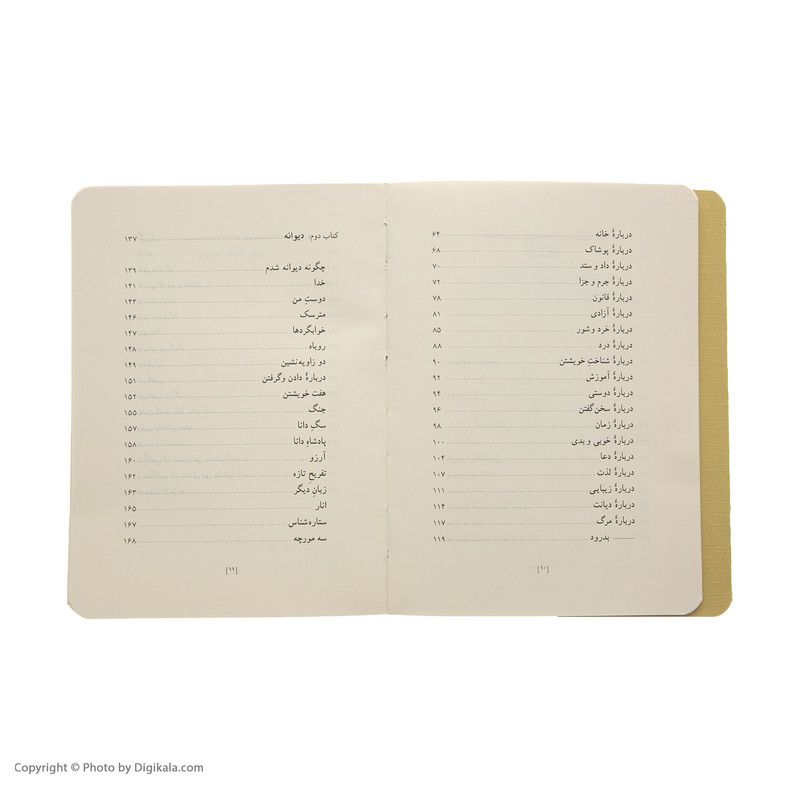 دربارهٔ خانه ........ ۶۲
دربارهٔ پوشاک ........ ۶۸
دربارهٔ داد و ستد ........ ۷۰
دربارهٔ جرم و جزا ........ ۷۲
دربارهٔ قانون ........ ۷۸
دربارهٔ آزادی ........ ۸۱
دربارهٔ خرد و شور ........ ۸۵
دربارهٔ درد ........ ۸۸
دربارهٔ شناختِ خویشتن ........ ۹۰
دربارهٔ آموزش ........ ۹۲
دربارهٔ دوستی ........ ۹۴
دربارهٔ سخن‌گفتن ........ ۹۶
دربارهٔ زمان ........ ۹۸
دربارهٔ خوبی و بدی ........ ۱۰۰
دربارهٔ دعا ........ ۱۰۴
دربارهٔ لذت ........ ۱۰۷
دربارهٔ زیبایی ........ ۱۱۱
دربارهٔ دیانت ........ ۱۱۴
دربارهٔ مرگ ........ ۱۱۷
بدرود ........ ۱۱۹
[۱۰]
کتاب دوم: دیوانه ........ ۱۳۷
چگونه دیوانه شدم ........ ۱۳۹
خدا ........ ۱۴۱
دوستِ من ........ ۱۴۳
مترسک ........ ۱۴۶
خوابگردها ........ ۱۴۷
روباه ........ ۱۴۸
دو زاویه‌نشین ........ ۱۴۹
دربارهٔ دادن و گرفتن ........ ۱۵۱
هفت خویشتن ........ ۱۵۲
جنگ ........ ۱۵۵
سگِ دانا ........ ۱۵۷
پادشاهِ دانا ........ ۱۵۸
آرزو ........ ۱۶۰
تفریحِ تازه ........ ۱۶۲
زبانِ دیگر ........ ۱۶۳
انار ........ ۱۶۵
ستاره‌شناس ........ ۱۶۷
سه مورچه ........ ۱۶۸
[۱۱]
Copyright © Photo by Digikala.com